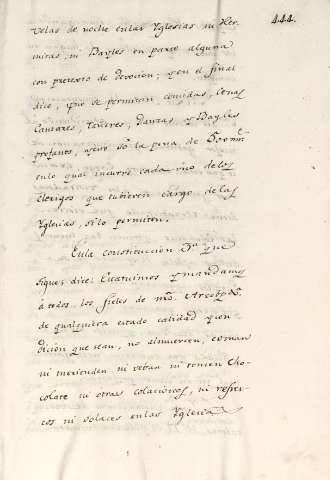 444.
velas de noche en las Yglesias ni Her
mitas, ni Bayles en parte alguna
con pretexto de devocion; y en el final
dice, que se permiten comidas, Cenas
Cantares, tañeres, Danzas, y Bayles
profanos, so la pena de 500 mrs
en lo qual incurre cada uno de los
Clerigos que tubieren cargo de las
Yglesias, si lo permiten.
En la constitucion 3ª que
sigue, dice: Estatuimos y mandamos
á todos los fieles de nro. Arzobpdo.
de qualquiera estado calidad y con
dicion que sean, no almuercen, coman
ni merienden ni veban ni tomen Cho
colate ni otras colaciones, ni refres
cos ni solaces en las Yglesia